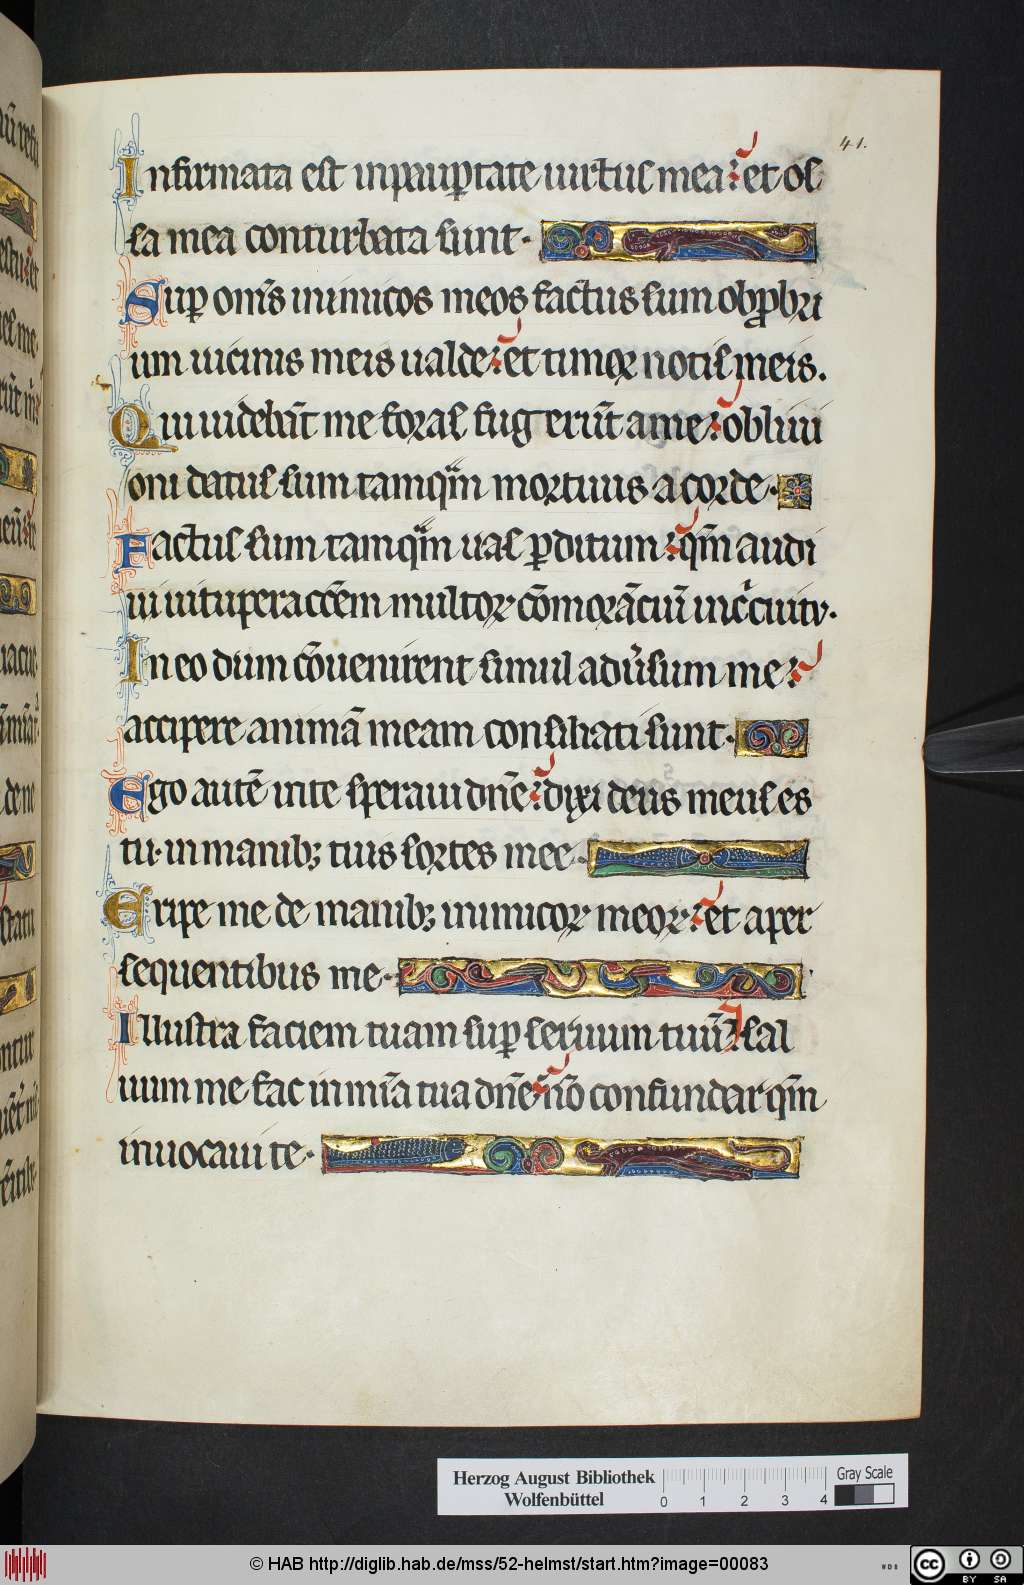 41.
Infirmata est inpaup̄tate uirtus mea: et os
sa mea conturbata sunt.
Sup̄ om̄s inimicos meos factus sum obp̄bri
um uicinis meis ualde: et timor notis meis.
Qui uidebāt me foras fugerūt a me: obliui
oni datus sum tamqͣm mortuus a corde.
Factus sum tamqͣm uas p̄ditum: qm̄ audi
ui uituperacōem multoꝝ cōmorāciū inc̓cuitv.
In eo dum cōuenirent simul adūsum me:
accipere animā meam consiliati sunt.
Ego autē inte speraui dn̄e: dixi deus meus es
tu. in manibꝫ tuis sortes mee.
Eripe me de manibꝫ inimicoꝝ meoꝝ: et a per
sequentibus me.
Illustra faciem tuam sup̄ seruum tuū: sal
uum me fac in mīa tua dn̄e: nō confundar qm̄
inuocaui te.
Herzog August Bibliothek
Wolfenbüttel
0 1 2 3 4
Gray Scale
© HAB http://diglib.hab.de/mss/52-helmst/start.htm?image=00083
WDB
cc BY SA